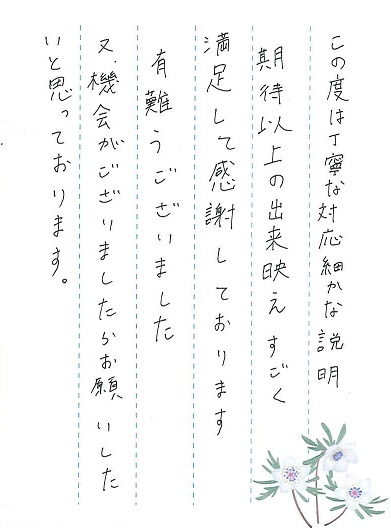 この度は丁寧な対応細かな説明
期待以上の出来映え すごく
満足して感謝しております
有難うございました
又、機会がございましたらお願いした
いと思っております。